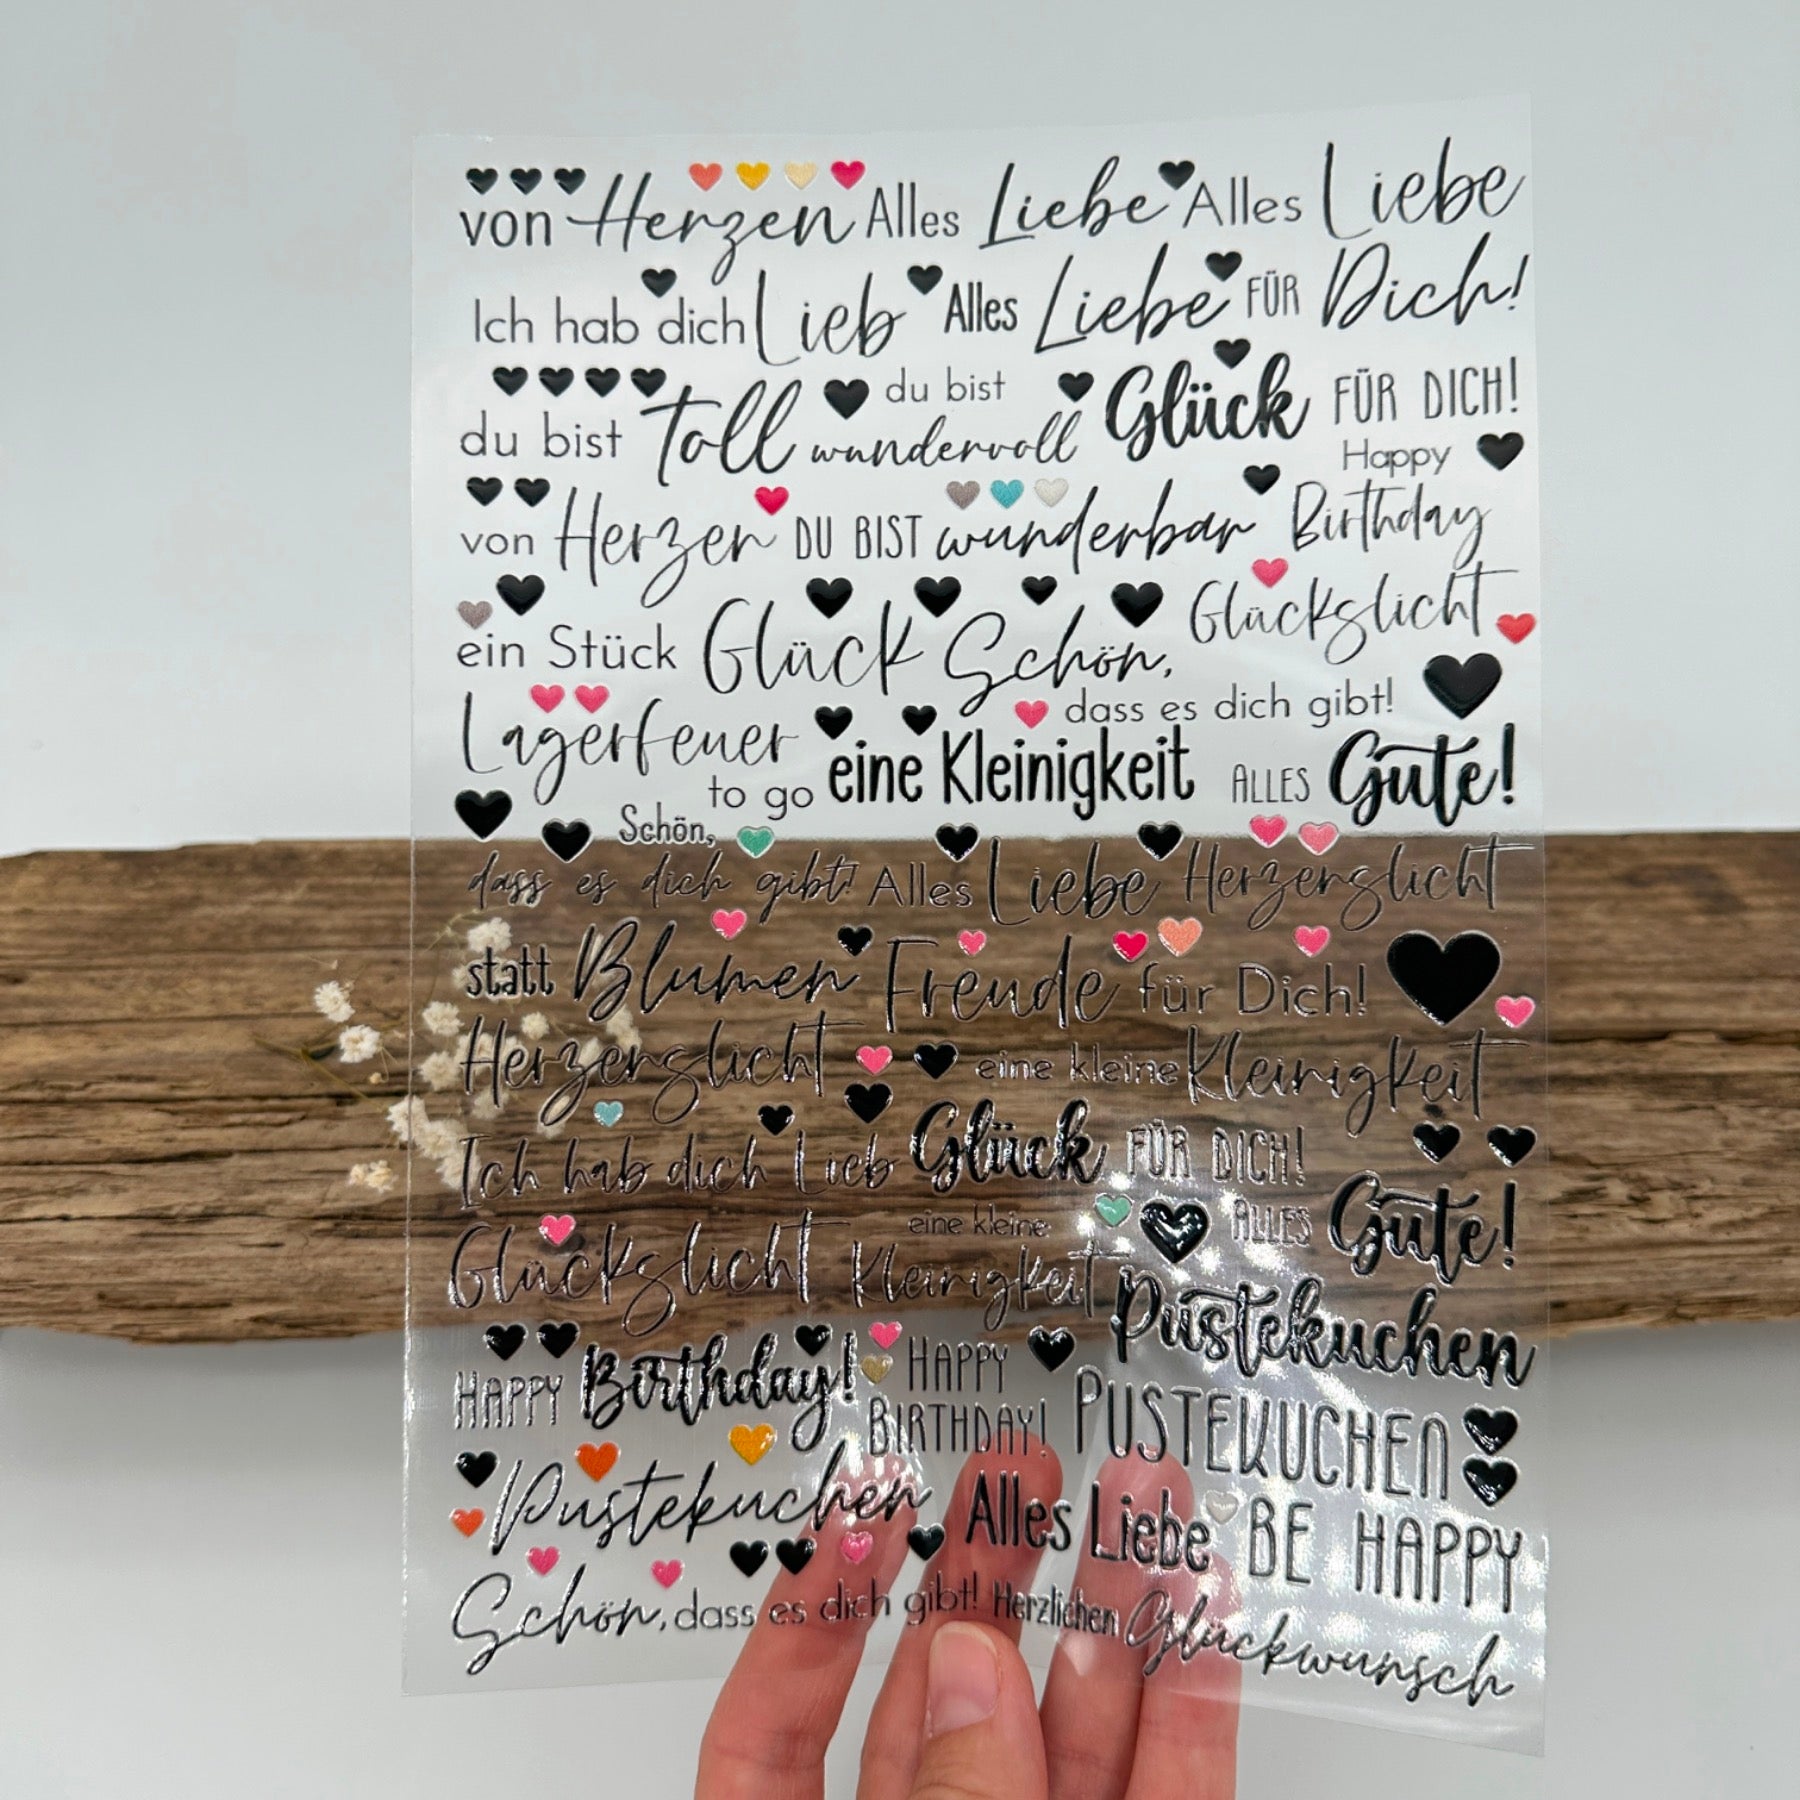 von Herzen Alles Liebe Alles Liebe
Ich hab dich Lieb Alles Liebe FÜR Dich!
du bist Toll du bist wundervoll Glück FÜR DICH!
von Herzen DU BIST wunderbar Happy Birthday
ein Stück Glück Schön, dass es dich gibt! Glückslicht
Lagerfeuer to go eine Kleinigkeit ALLES Gute!
Schön,
dass es dich gibt! Alles Liebe Herzenslicht
statt Blumen Freude für Dich!
Herzenslicht eine kleine Kleinigkeit
Ich hab dich Lieb Glück FÜR DICH!
Glückslicht eine kleine Kleinigkeit ALLES Gute!
Pustekuchen
HAPPY Birthday! HAPPY BIRTHDAY! PUSTEKUCHEN
Pustekuchen Alles Liebe BE HAPPY
Schön, dass es dich gibt! Herzlichen Glückwunsch